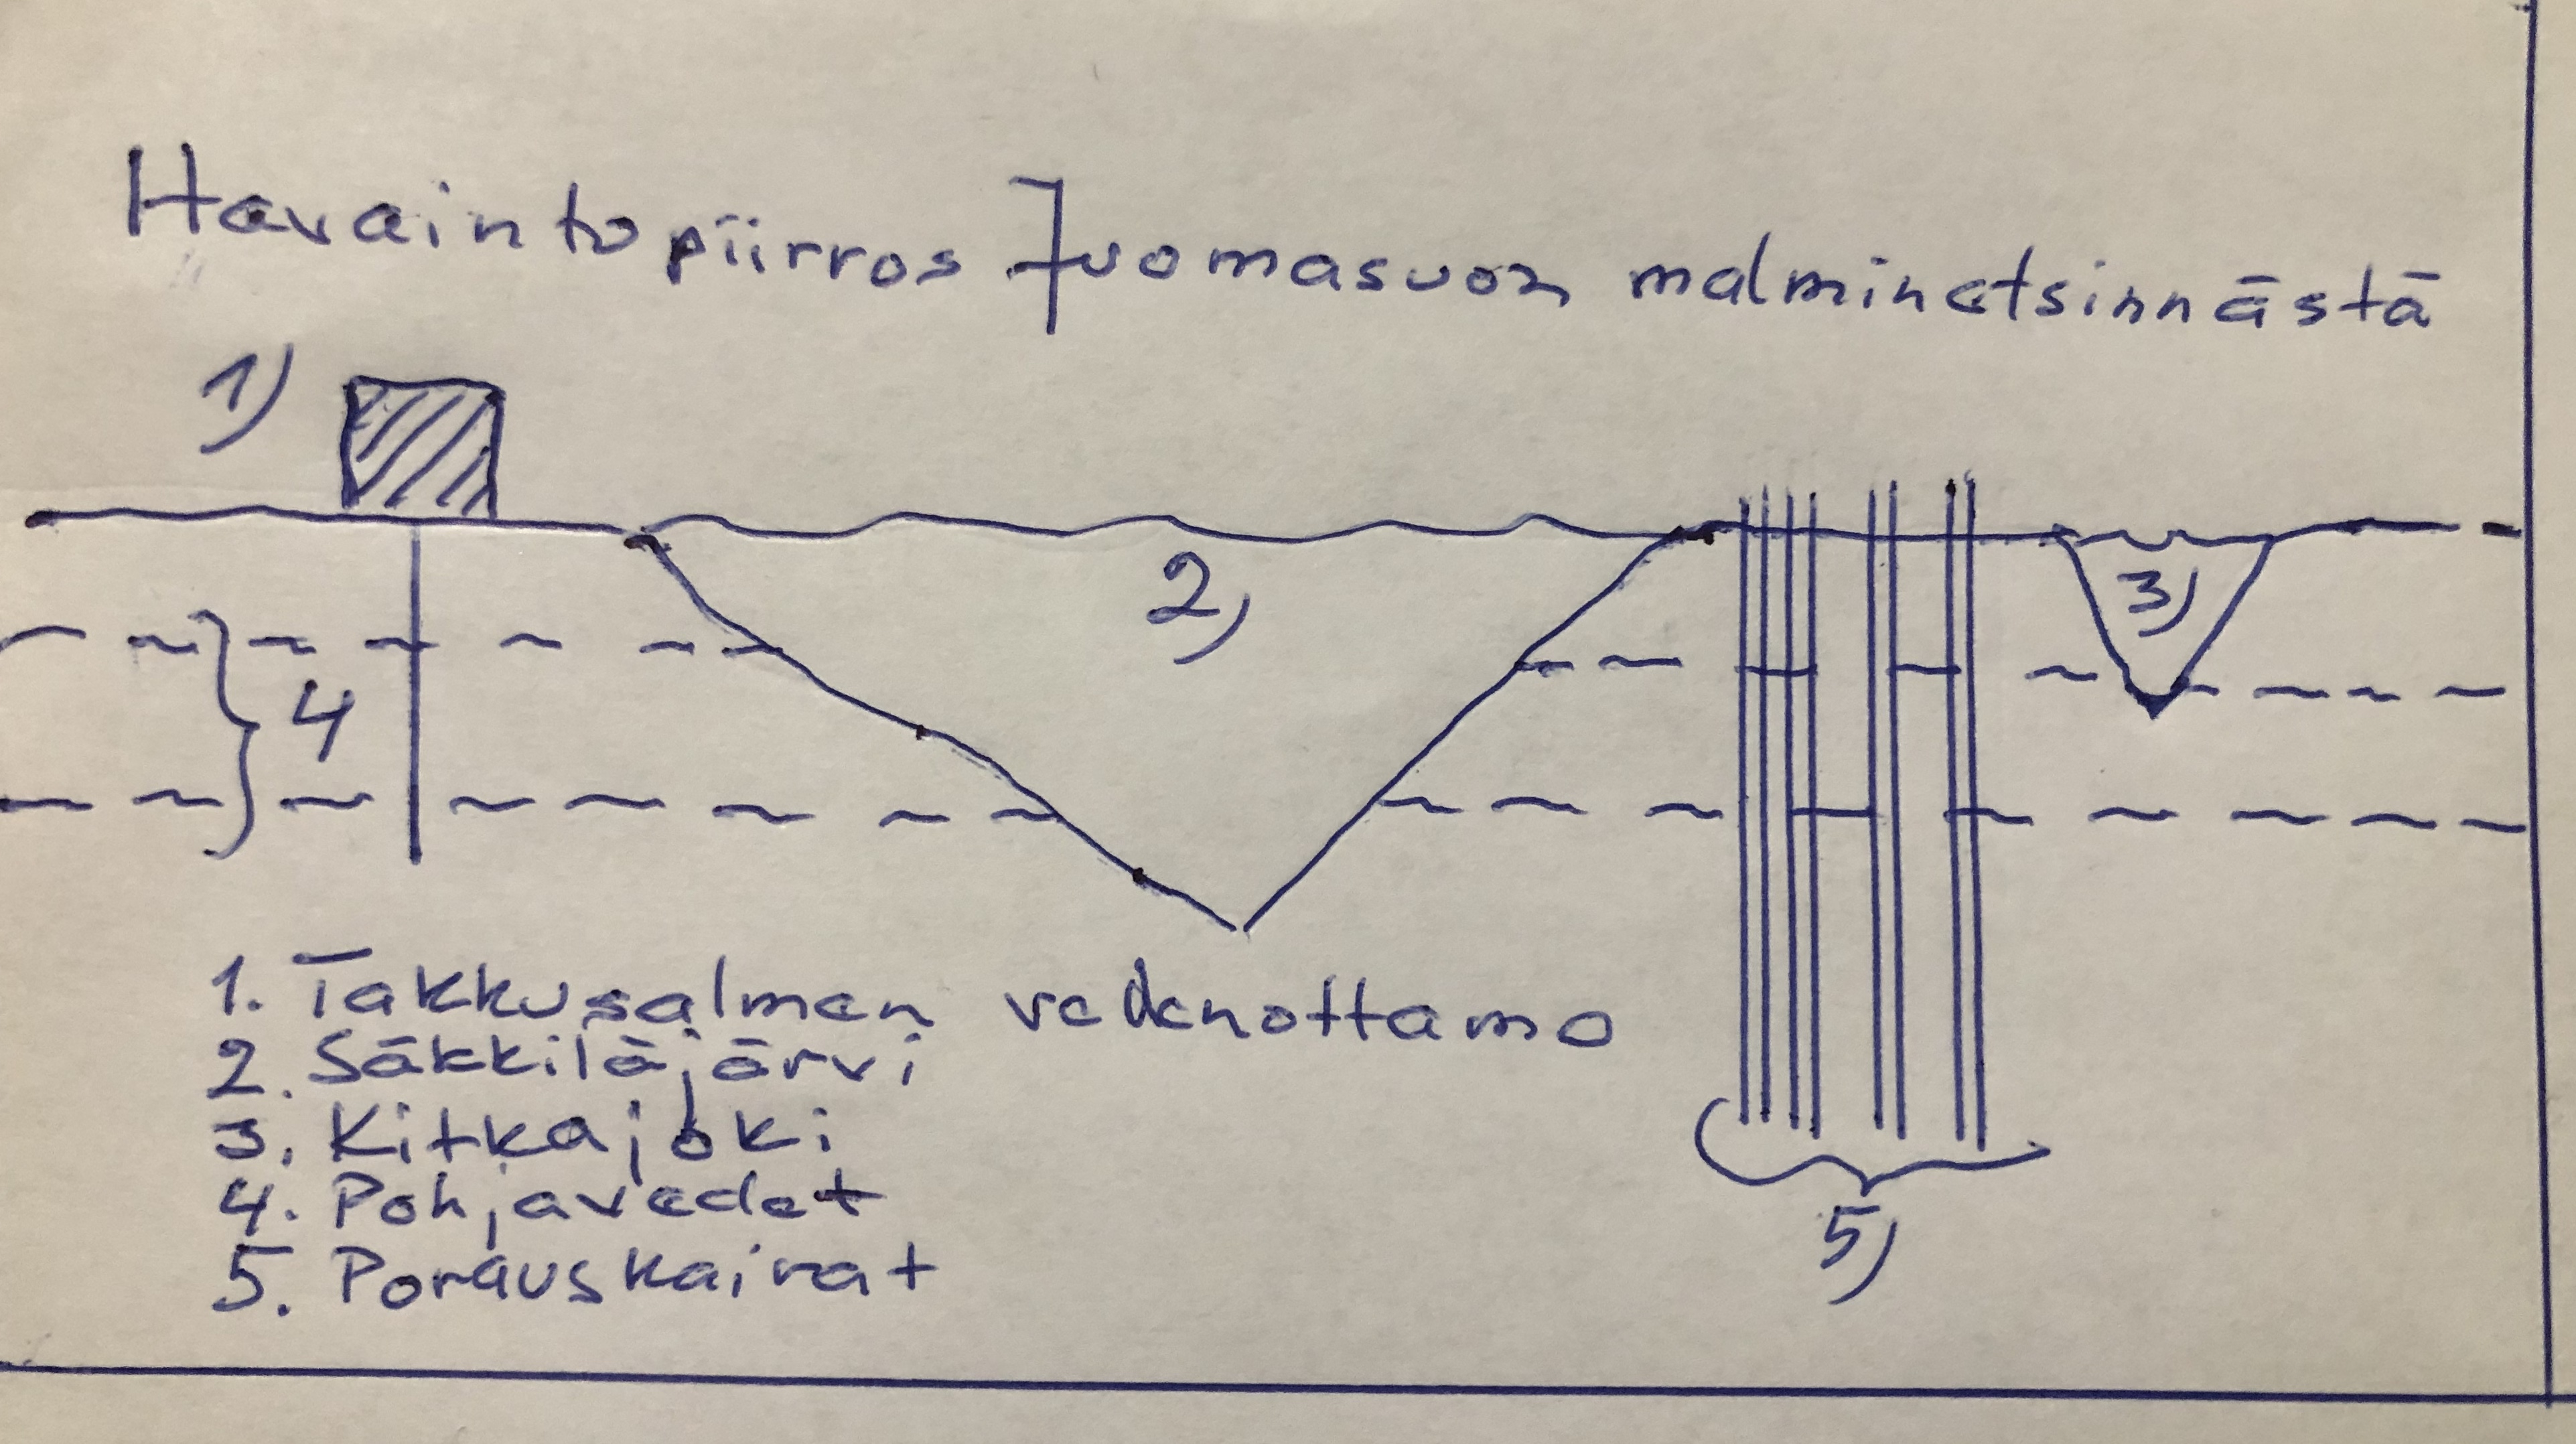 Havaintopiirros Juomasuon malminetsinnästä
1)
2)
3)
4
1. Takkusalmen vedenottamo
2. Säkkiläjärvi
3. Kitkajoki
4. Pohjavedet
5. Porauskairat
5)